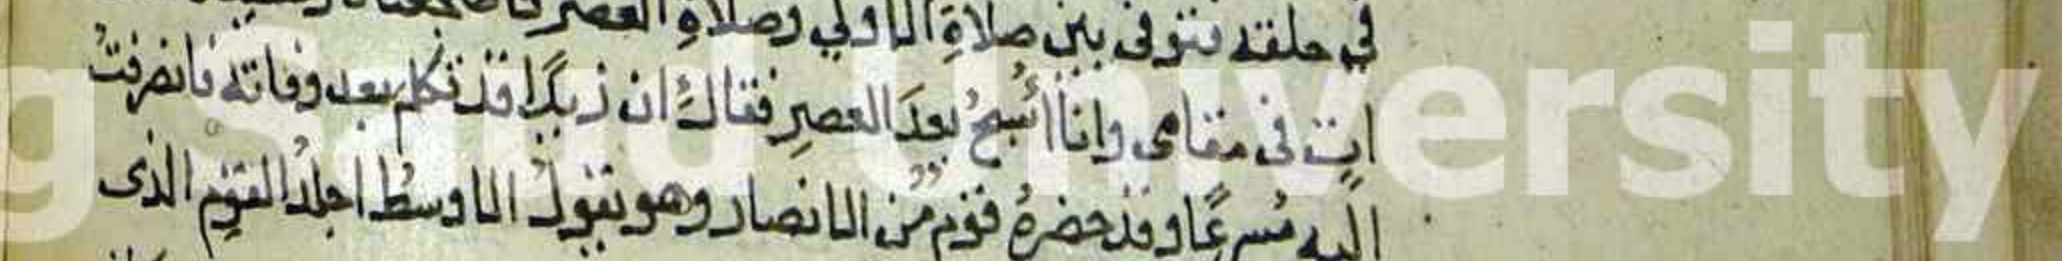 في حلقه فتوفى بين صلاة الاولي وصلاة العصر
ات في مقامى وانا اسبح بعد العصر فقال ان زيدا قد تكلم بعد وفاته فانصرفت
اليه مسرعا وقد حضره قوم من الانصار وهو يقول الاوسط اجلد القوم الذى
g Saud University